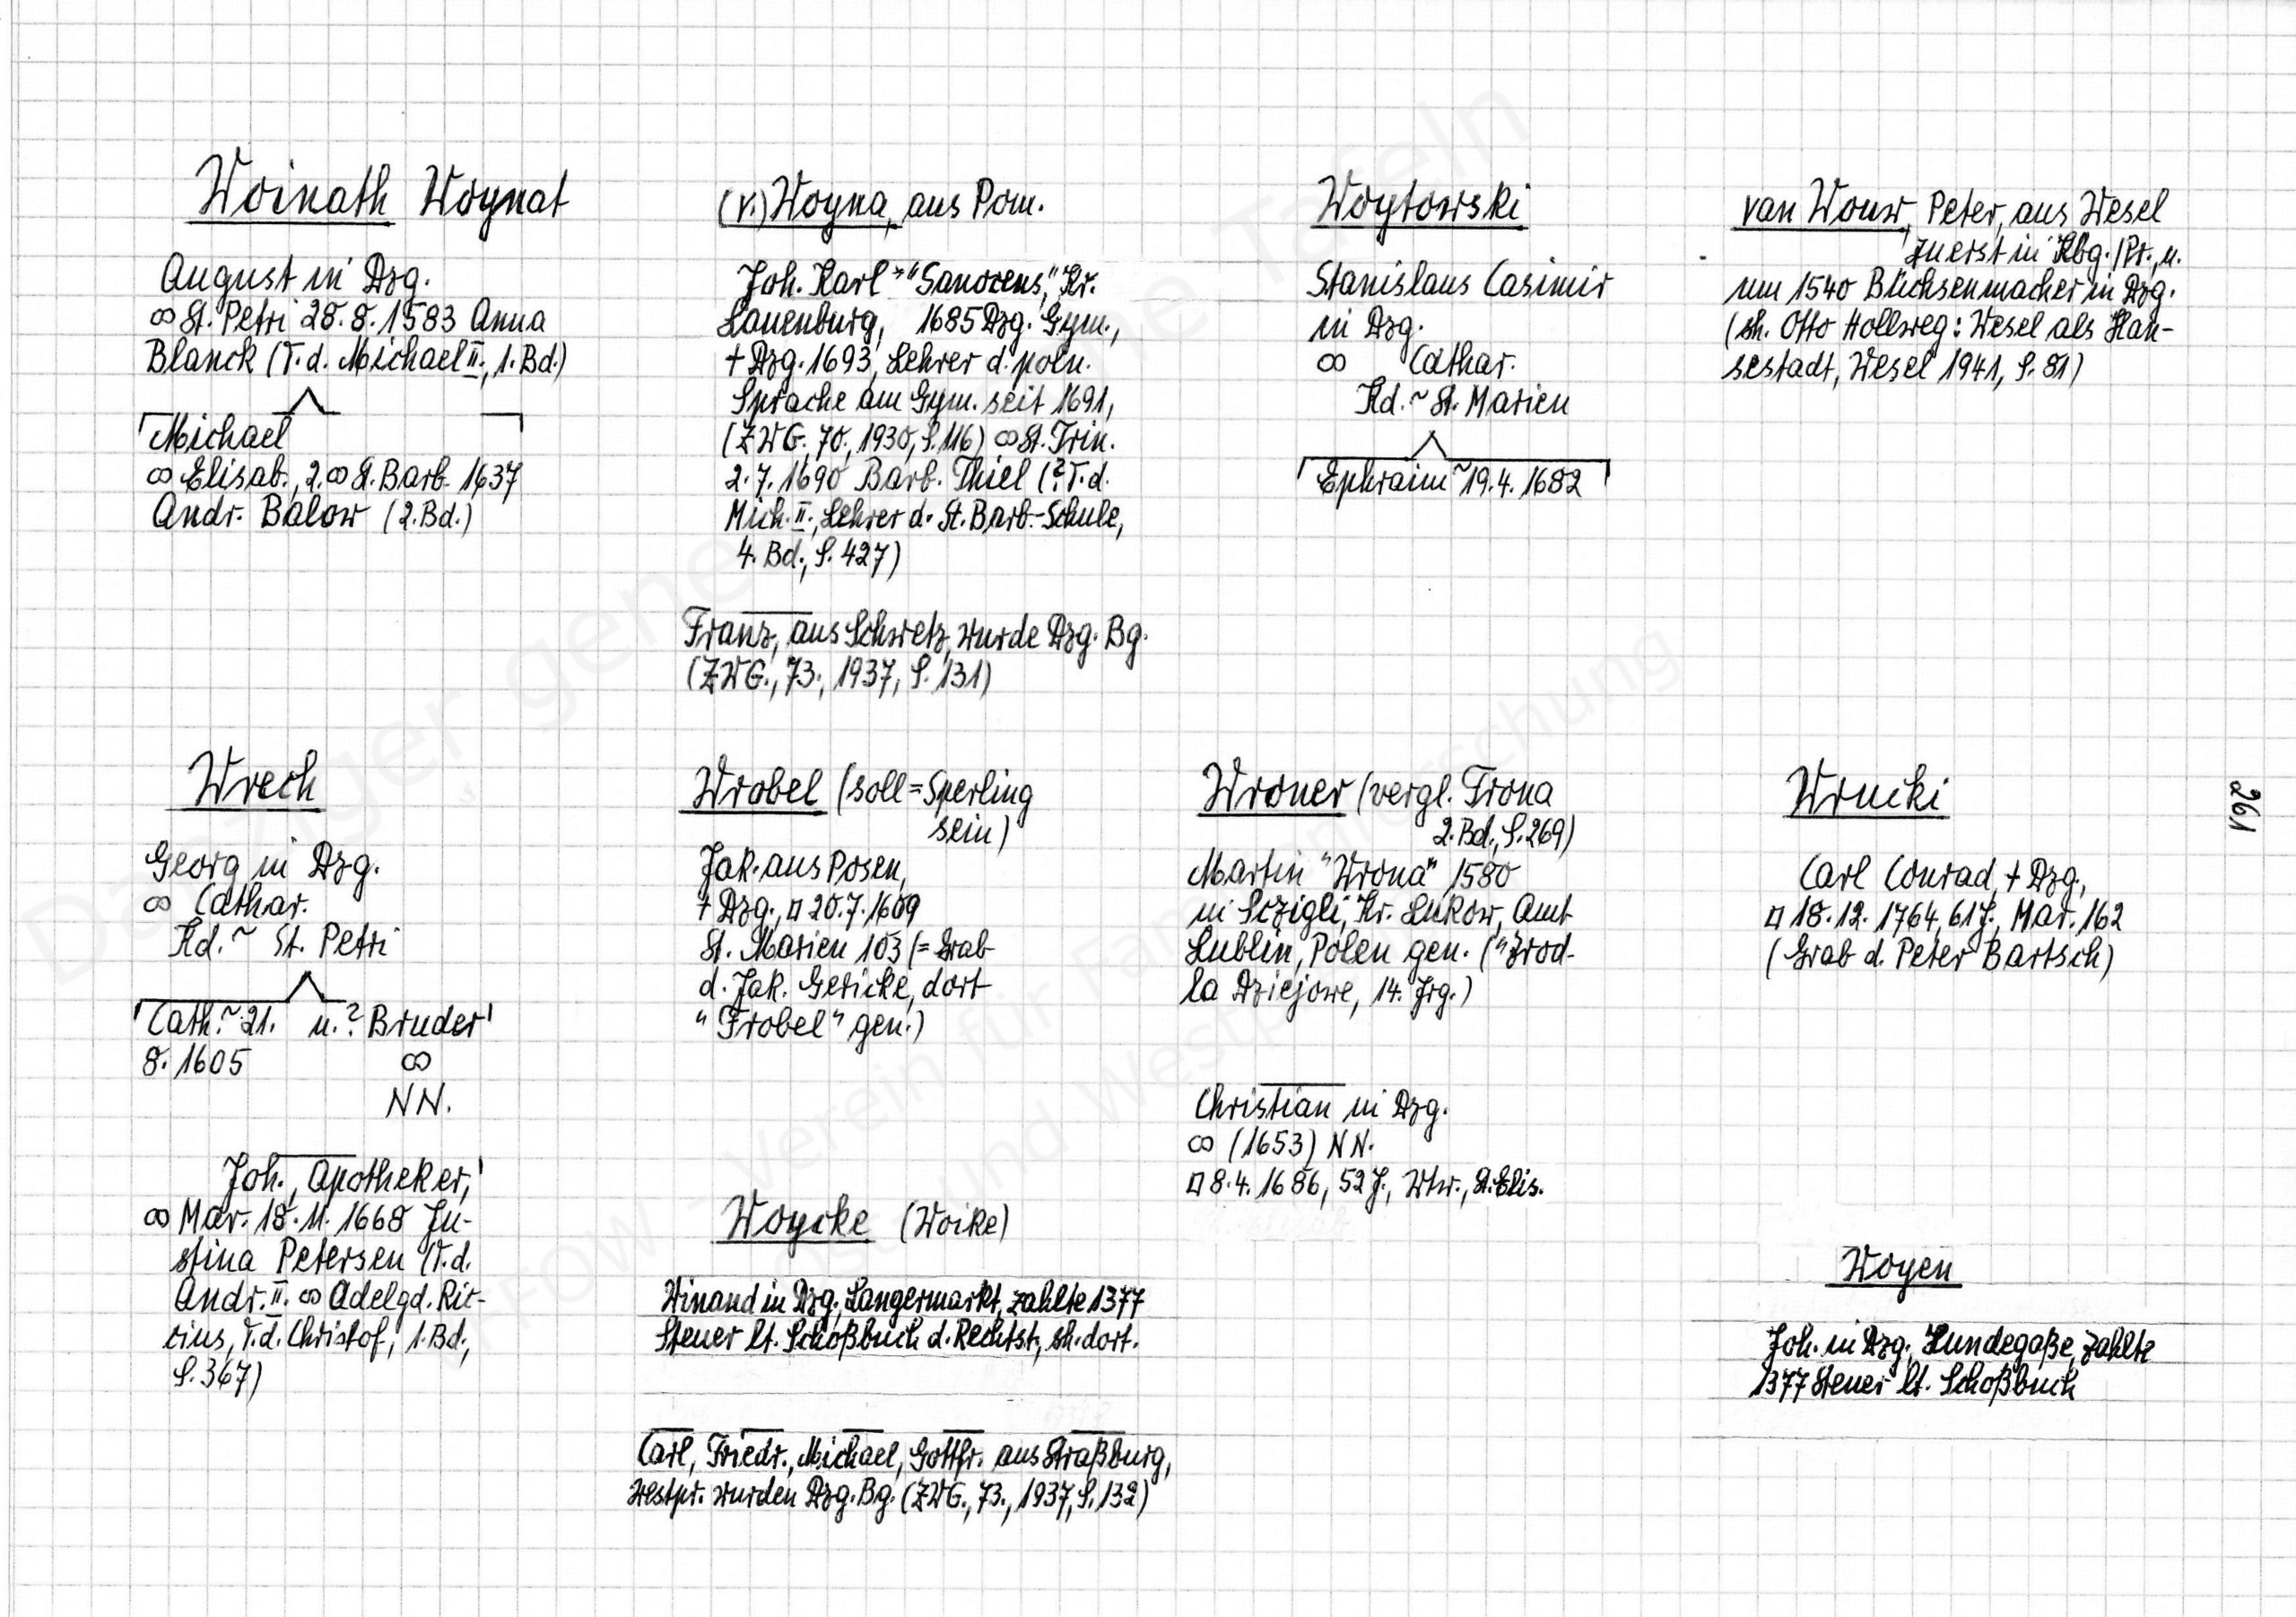 Woinath Woynat
August in Dzg.
∞ St. Petri 28. 8. 1583 Anna
Blanck (T. d. Michael II., 1. Bd.)
Michael
∞ Elisab., 2. ∞ St. Barb. 1637
Andr. Balow (2. Bd.)
(v.) Woyna, aus Pom.
Joh. Karl "Sanocens", Kr.
Lauenburg, 1685 Dzg. Gym.,
+ Dzg. 1693, Lehrer d. poln.
Sprache am Gym. seit 1691,
(ZWG. 70., 1930, S. 116) ∞ St. Trin.
2. 7. 1690 Barb. Thiel (? T. d.
Mich. II., Lehrer d. St. Barb.-Schule,
4. Bd., S. 427)
Franz, aus Schwetz, wurde Dzg. Bg.
(ZWG., 73., 1937, S. 131)
Woytowski
Stanislaus Casimir
in Dzg.
∞ Cathar.
Kd. ~ St. Marien
Ephraim ~ 19. 4. 1682
van Wouw, Peter, aus Wesel
zuerst in Kbg./Pr., u.
um 1540 Büchsenmacher in Dzg.
(sh. Otto Hollweg: Wesel als Han-
sestadt, Wesel 1941, S. 81)
Wrech
Georg in Dzg.
∞ Cathar.
Kd. ~ St. Petri
Cath. ~ 21. u. ? Bruder
8. 1605 ∞
NN.
Joh., Apotheker,
∞ Mar. 18. 11. 1668 Ju-
stina Petersen (T. d.
Andr. II. ∞ Adelgd. Ric-
cius, T. d. Christof, 1. Bd.,
S. 367)
Wrobel (soll = Sperling
sein)
Jak. aus Posen,
+ Dzg., □ 20. 7. 1609
St. Marien 103 (= Grab
d. Jak. Gericke, dort
"Frobel" gen.)
Woycke (Woike)
Winand in Dzg., Langermarkt, zahlte 1377
Steuer lt. Schoßbuch d. Rechtst., sh. dort.
Carl, Friedr., Michael, Gottfr. aus Straßburg,
Westpr. wurden Dzg. Bg. (ZWG., 73., 1937, S. 132)
Wroner (vergl. Frona
2. Bd., S. 269)
Martin "Wrona" 1580
in Sczigli, Kr. Lukow, Amt
Lublin, Polen gen. ("Zrod-
la Dziejowe, 14. Jrg.)
Christian in Dzg.
∞ (1653) NN.
□ 8. 4. 1686, 52 J., Wtw., St. Elis.
Wrucki
Carl Conrad, + Dzg.,
□ 18. 12. 1764, 61 J., Mar. 162
(Grab d. Peter Bartsch)
Woyen
Joh. in Dzg., Hundegaße, zahlte
1377 Steuer lt. Schoßbuch
261